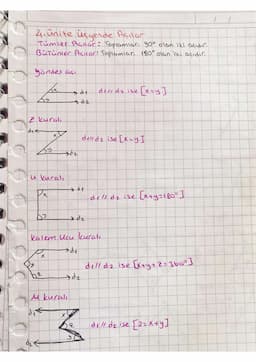 4. ünite Üçgende Açılar
Tümler Açılar: Toplamları 90° olan iki açıdır.
Bütünler Açılar: Toplamları 180° olan iki açıdır.
Yöndeş açı
d1
d1//d2 ise [x=y]
d2
Z kuralı
d1
x
d1//d2 ise [x=y]
y
d2
U kuralı
x
d1
d1//d2 ise [x+y=180°]
y
d2
Kalem ucu kuralı
x
d1
d1//d2 ise [x+y+z=360°]
z
d2
M kuralı
d1
x
z
d1//d2 ise [z=x+y]
y
d2